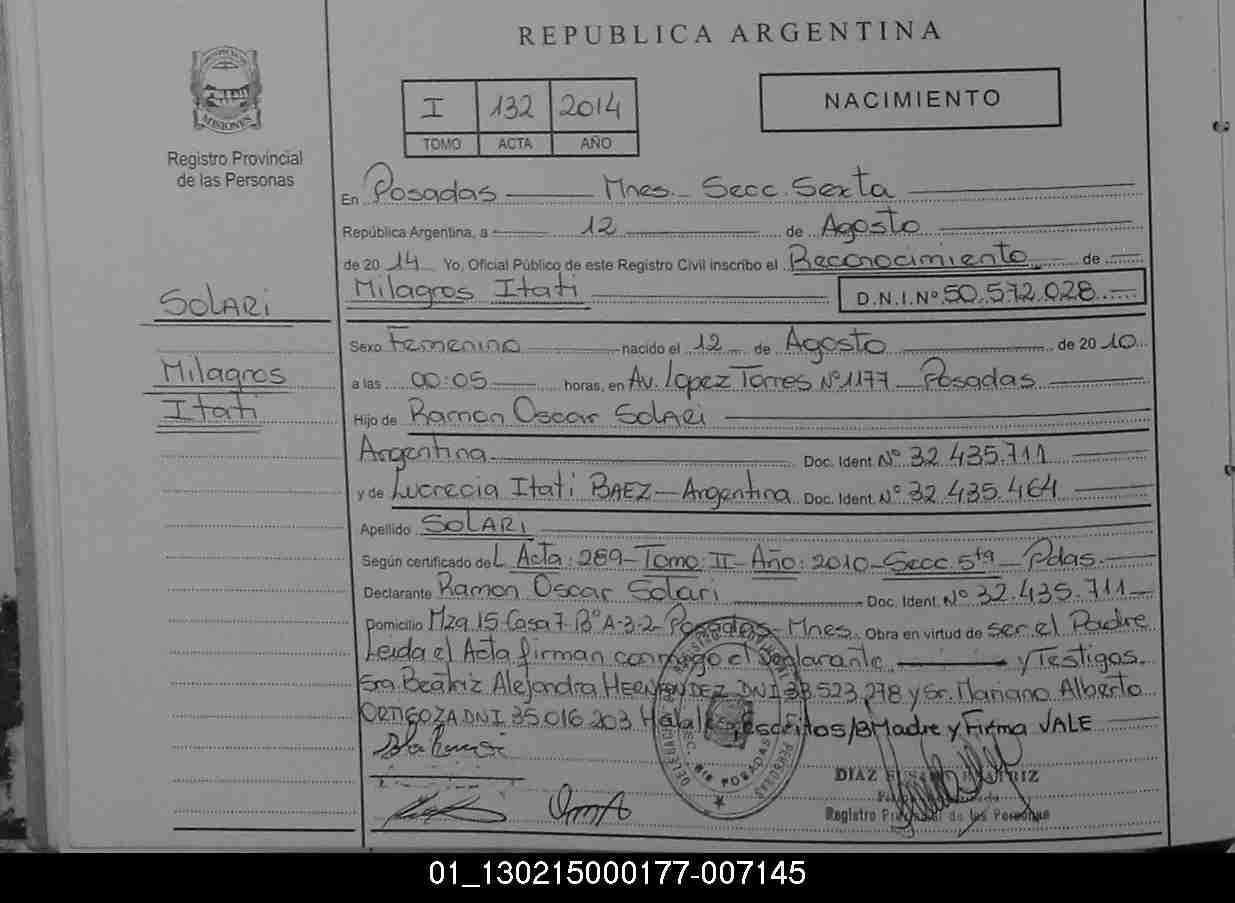 REPUBLICA ARGENTINA
MISIONES
Registro Provincial
de las Personas
I 132 2014
TOMO ACTA AÑO
NACIMIENTO
En Posadas Mnes. Secc. Sexta
República Argentina, a 12 de Agosto
de 2014 Yo, Oficial Público de este Registro Civil inscribo el Reconocimiento de
Milagros Itati D.N.I.Nº 50.572.028
SOLARi
Milagros
Itati
Sexo Femenino nacido el 12 de Agosto de 2010
a las 00:05 horas, en Av. Lopez Torres Nº 1177 Posadas
Hijo de Ramon Oscar SOLARi
Argentina Doc. Ident. Nº 32.435.711
y de Lucrecia Itati BAEZ - Argentina Doc. Ident. Nº 32.435.464
Apellido SOLARi
Según certificado del Acta: 289 - Tomo: II - Año: 2010 - Secc. 5ta - Pdas.
Declarante Ramon Oscar Solari Doc. Ident. Nº 32.435.711
Domicilio Mza 15 Casa 7 Bº A-3-2 Posadas - Mnes. Obra en virtud de ser el Padre
Leida el Acta firman conmigo el Declarante y Testigos.
Sra Beatriz Alejandra HERNANDEZ DNI 38.523.278 y Sr. Mariano Alberto
ORTIGOZA DNI 35.016.203 escritos/B Madre y Firma VALE
DIAZ
Registro de las Personas
POSADAS
PERSONAS
01_130215000177-007145